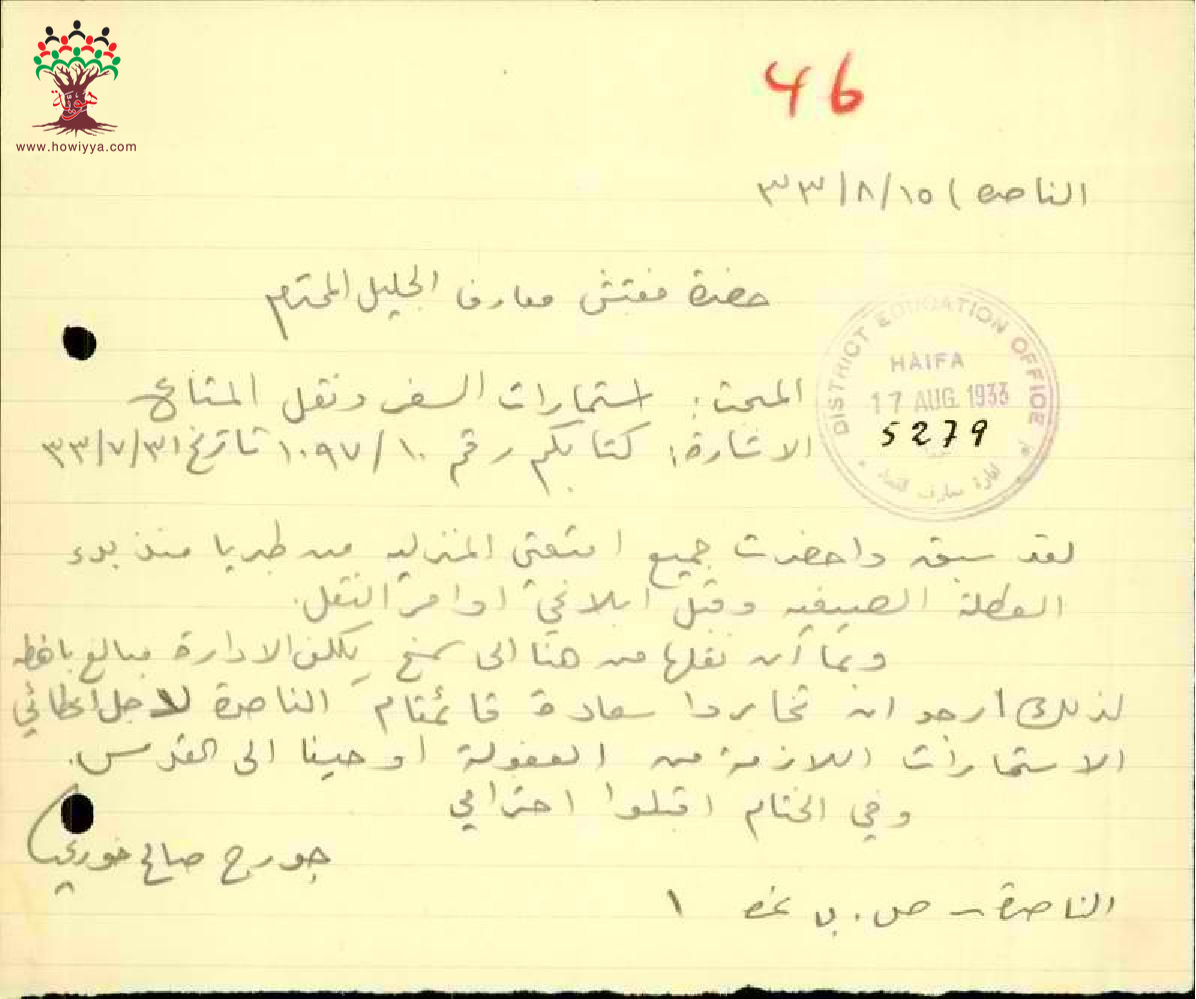 هوية
www.howiyya.com
46
الناصرة ) ١٥/٨/٣٣
حضرة مفتش معارف الجليل المحترم
DISTRICT EDUCATION OFFICE
HAIFA
17 AUG 1933
5279
ادارة معارف
المبحث: استمارات السفر ونقل المتاع
الاشارة: كتابكم رقم ١٠٩٧/١٠ تاريخ ٣١/٧/٣٣
لقد سبق واحضرت جميع امتعتي المنزلية من طبريا منذ بدء
العطلة الصيفية وقبل ابلاغي اوامر النقل.
وبما أن نقلها من هنا الى سمخ يكلف الادارة مبالغ باهظة
لذلك ارجو ان تخابروا سعادة قائمقام الناصرة لاجل اعطائي
الاستمارات اللازمة من العفولة او حيفا الى القدس.
وفي الختام اقبلوا احترامي
جورج صالح خوري
الناصرة - ص. ب ١